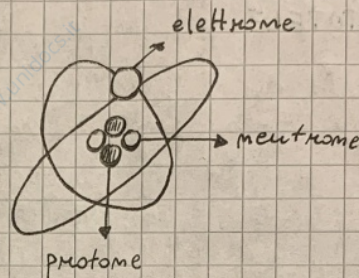 elettrone
neutrone
protone